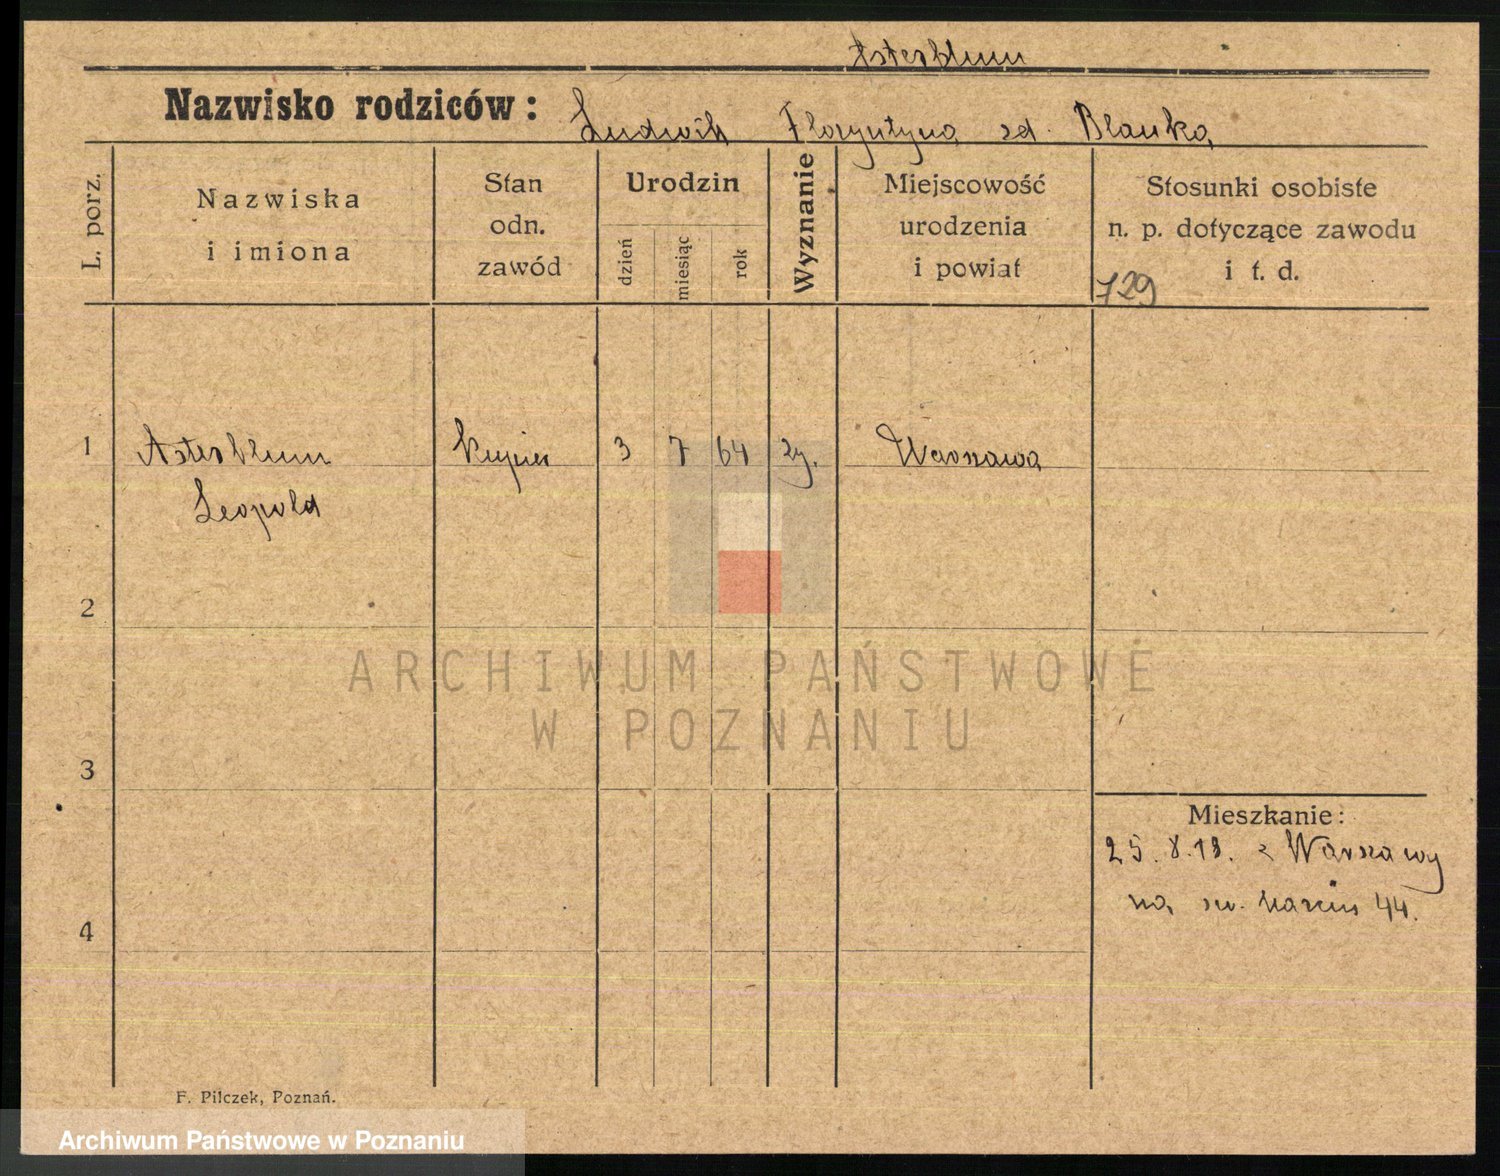 Asterblum
Nazwisko rodziców: Ludwik Florentyna zd. Blanka
L. porz.
Nazwiska
i imiona
Stan
odn.
zawód
Urodzin
dzień
miesiąc
rok
Wyznanie
Miejscowość
urodzenia
i powiat
Stosunki osobiste
n. p. dotyczące zawodu
i t. d.
729
1 Asterblum kupiec 3 7 64 ży. Warszawa
Leopold
2
ARCHIWUM PAŃSTWOWE
W POZNANIU
3
Mieszkanie:
25. 8. 19. z Warszawy
na św. Marcin 44.
4
F. Pilczek, Poznań.
Archiwum Państwowe w Poznaniu